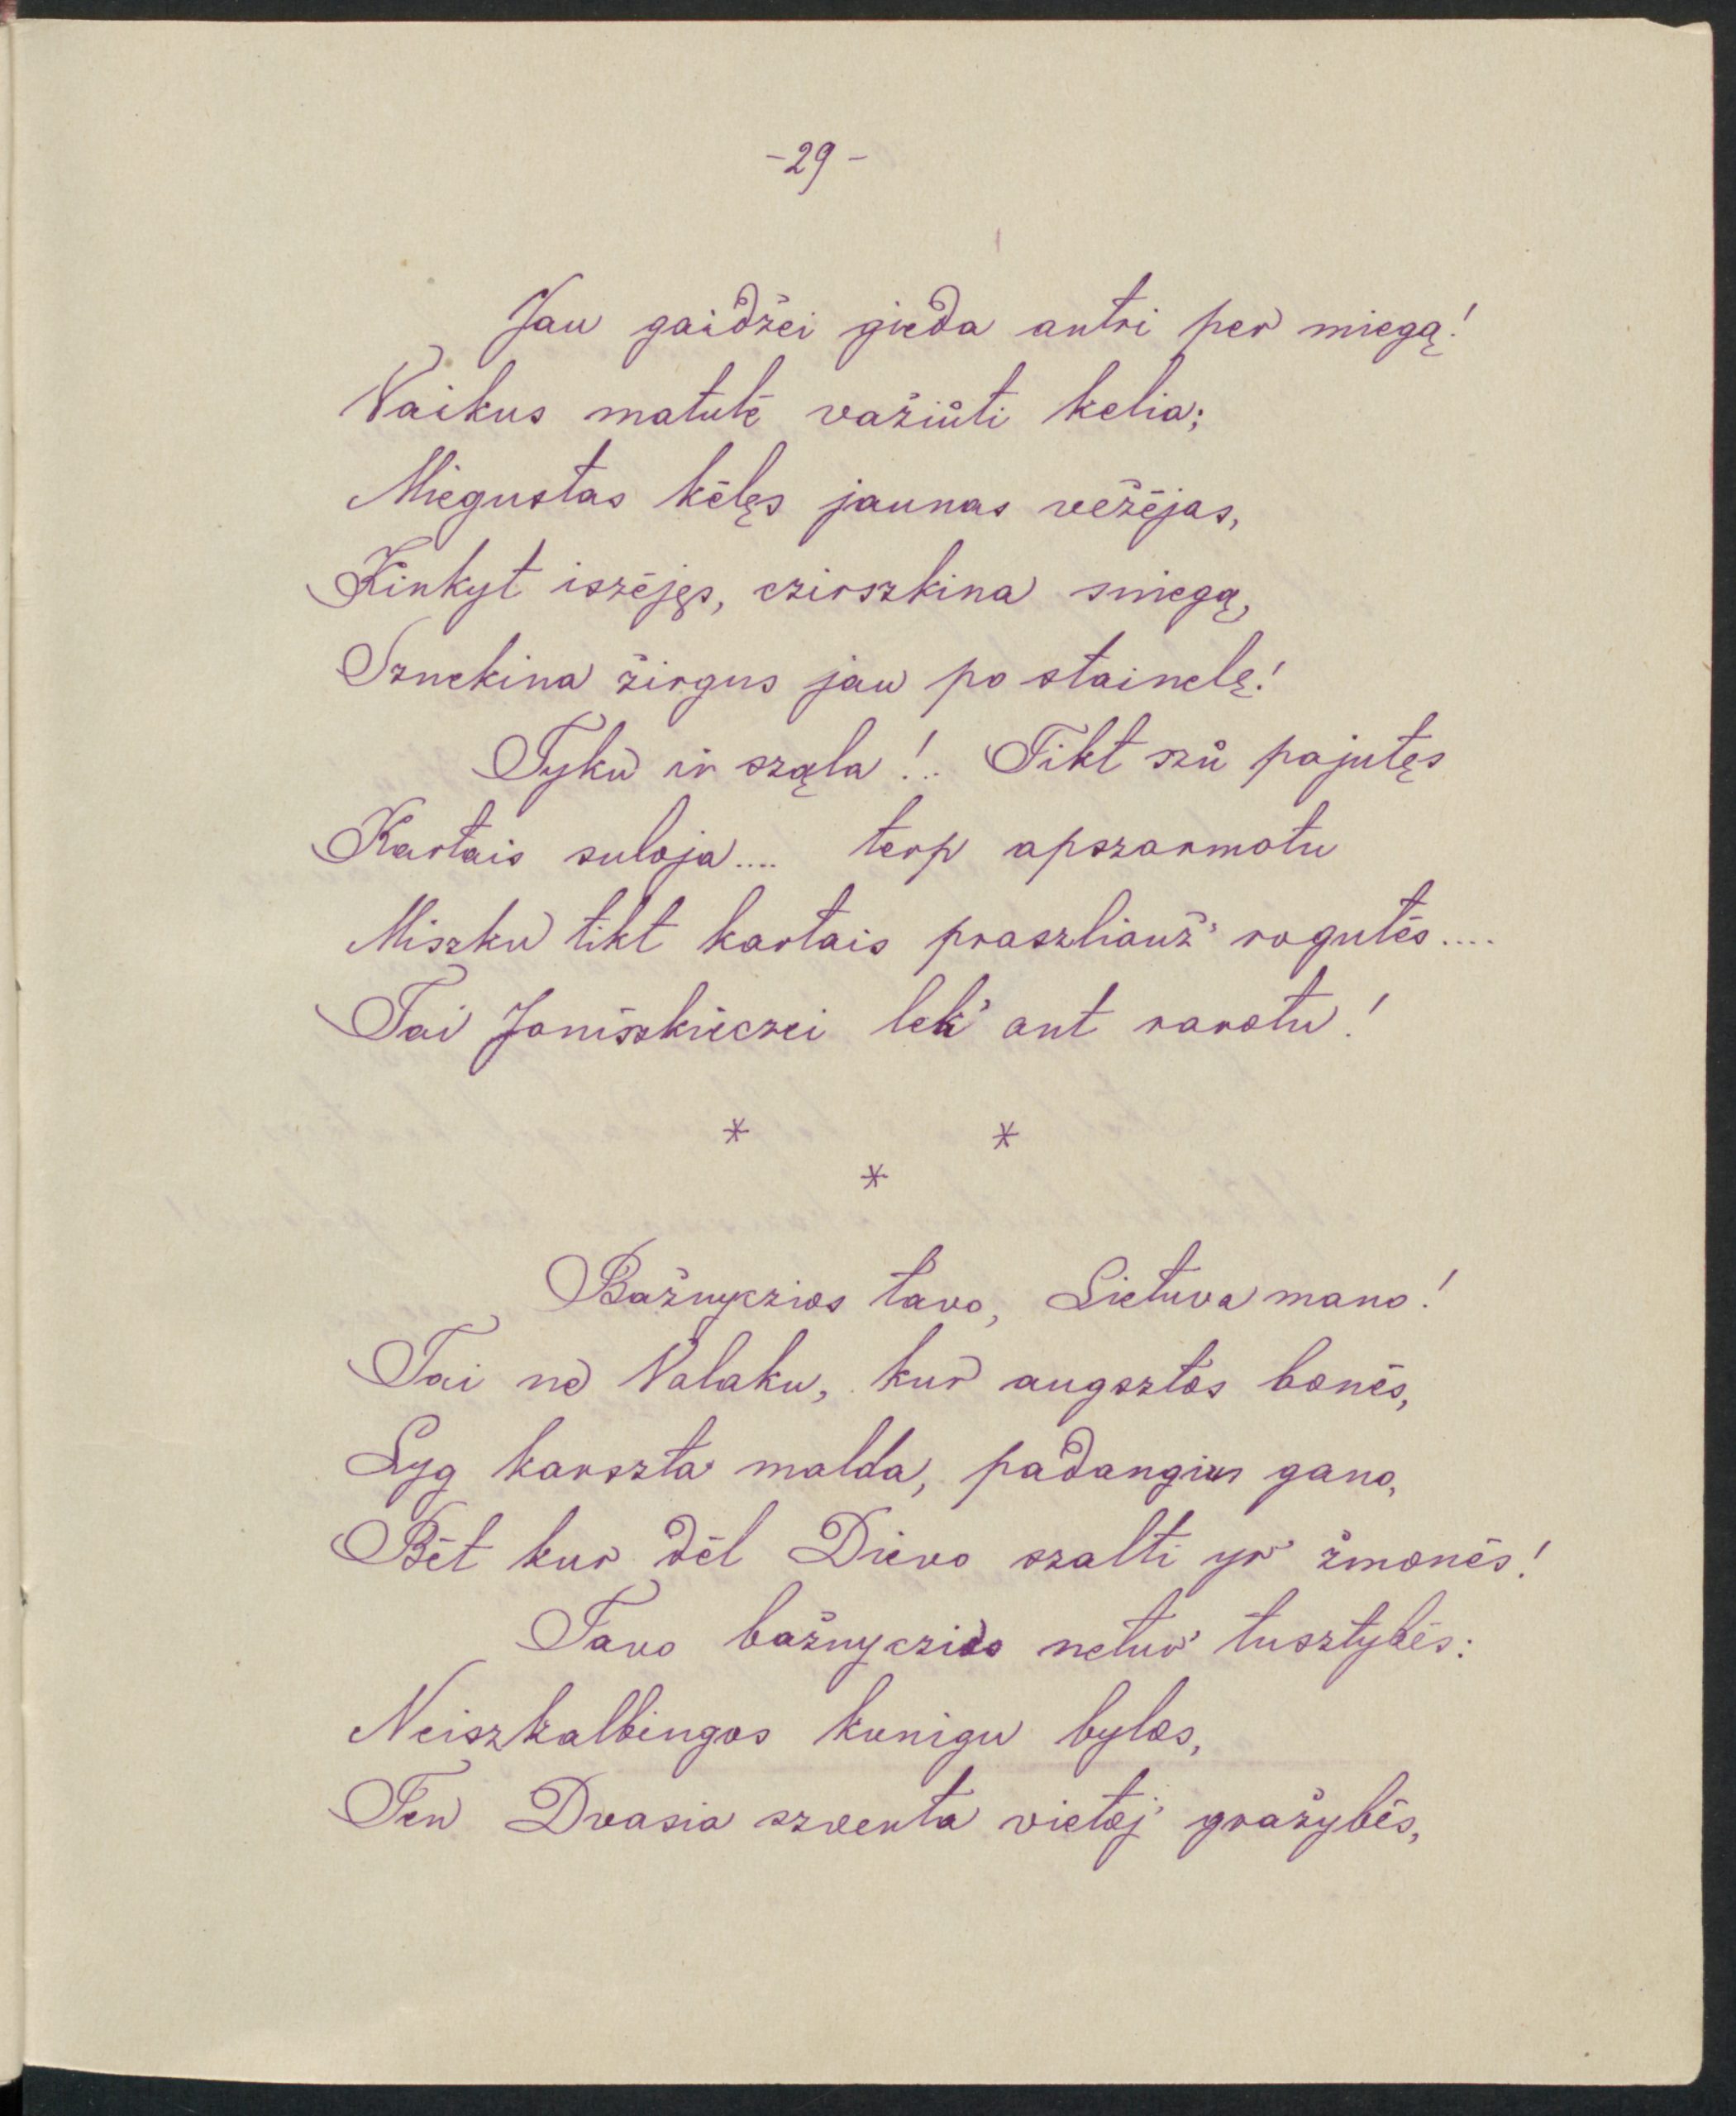 -29-
Jau gaidžei gieda antri per miegą!
Vaikus matutė važiůti kelia;
Miegustas kėlęs jaunas vėžėjas,
Kinkyt iszėjęs, czirszkina sniegą,
Sznekina žirgus jau po stainelę!
Tyku ir sząla!.. Tikt szů pajutęs
Kartais suloja.... terp apszarmotu
Miszku tikt kartais praszliauž' rogutės....
Tai Joniszkiėczei lek' ant rarotu!
* *
*
Bažnyczios tavo, Lietuva mano!
Tai ne Valaku, kur augsztos bonės,
Lyg karszta malda, padangius gano,
Bėt kur dėl Dievo szalti yr' žmonės!
Tavo bažnyczios netur' tusztybės:
Neiszkalbingos kunigu bylos,
Ten Dvasia szventa vietoj' gražybės,